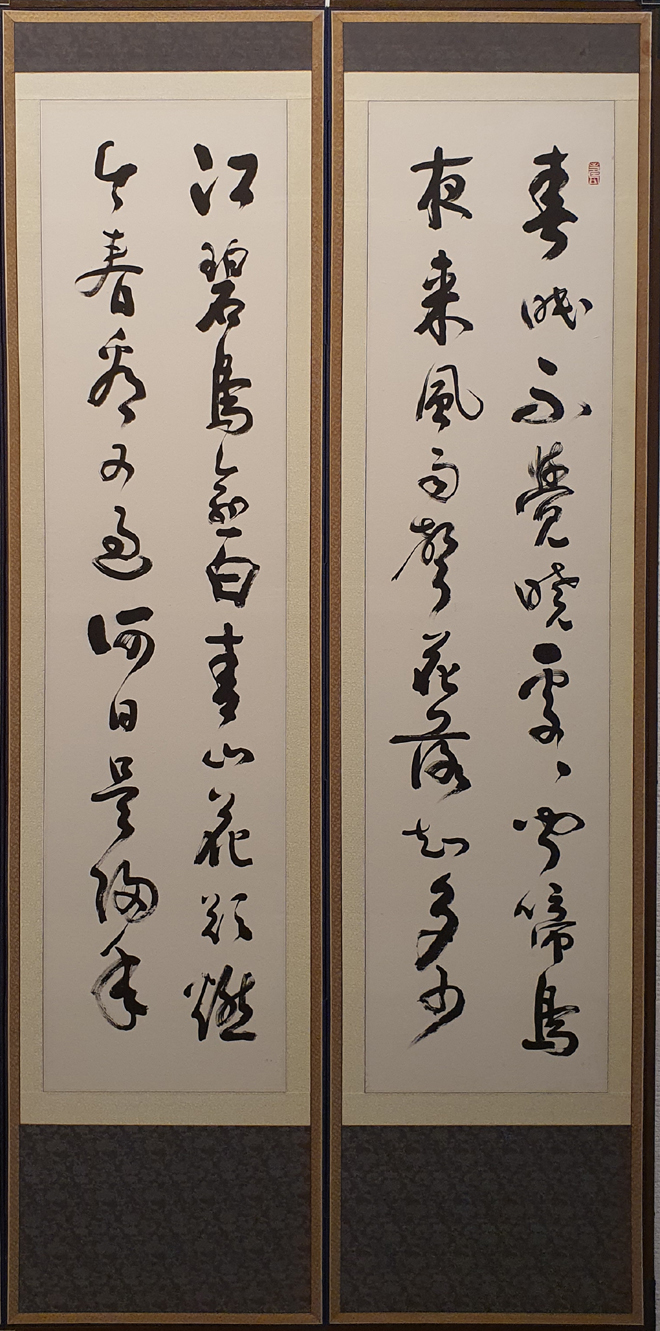 春眠不覺曉處〻聞啼鳥
夜來風雨聲花落知多少
江碧鳥逾白青山花欲燃
今春看又過何日是歸年